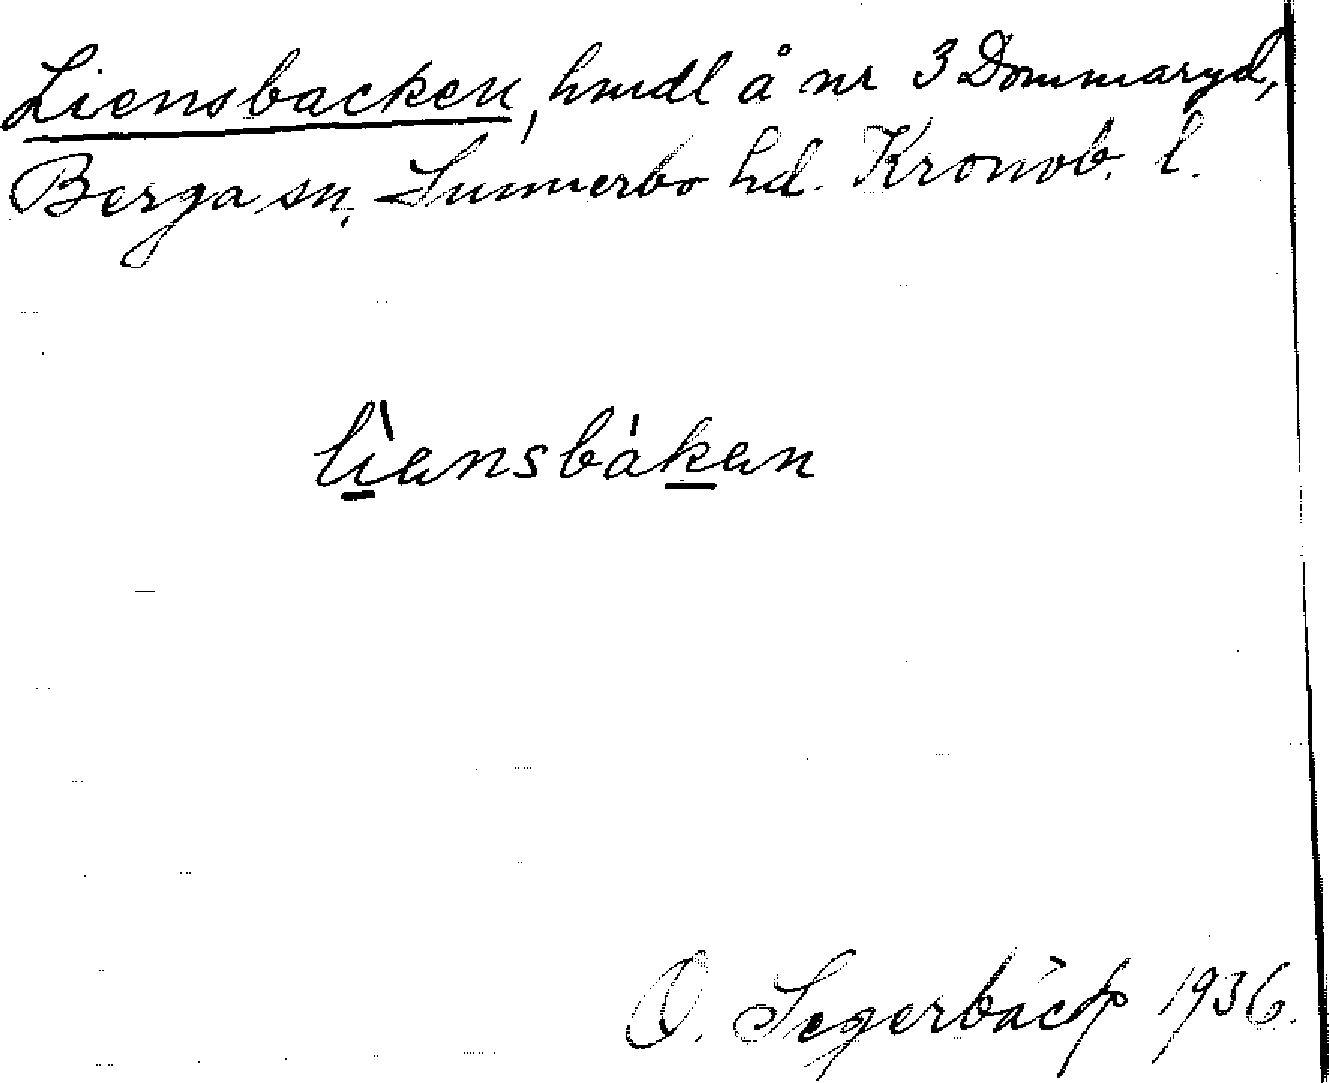 Liensbacken, hmdl å nr 3 Dommaryd,
Berga sn, Sunnerbo hd. Kronob. l.
lìansbákan
O. Segerbäck 1936.